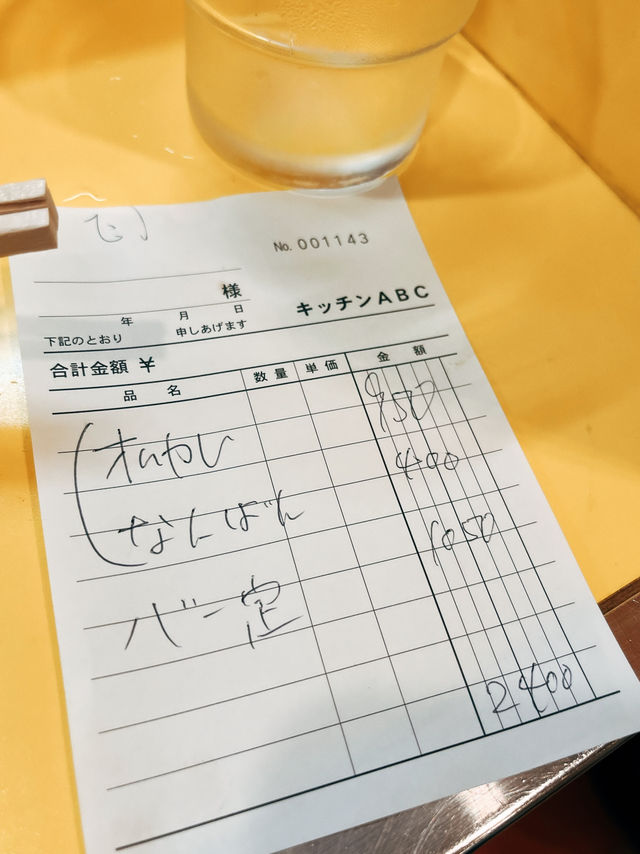 No. 001143
様
年 月 日
キッチンABC
下記のとおり 申しあげます
合計金額 ¥
品 名 数量 単価 金 額
950
オムカレ
400
なんばん
1050
バー定
2400